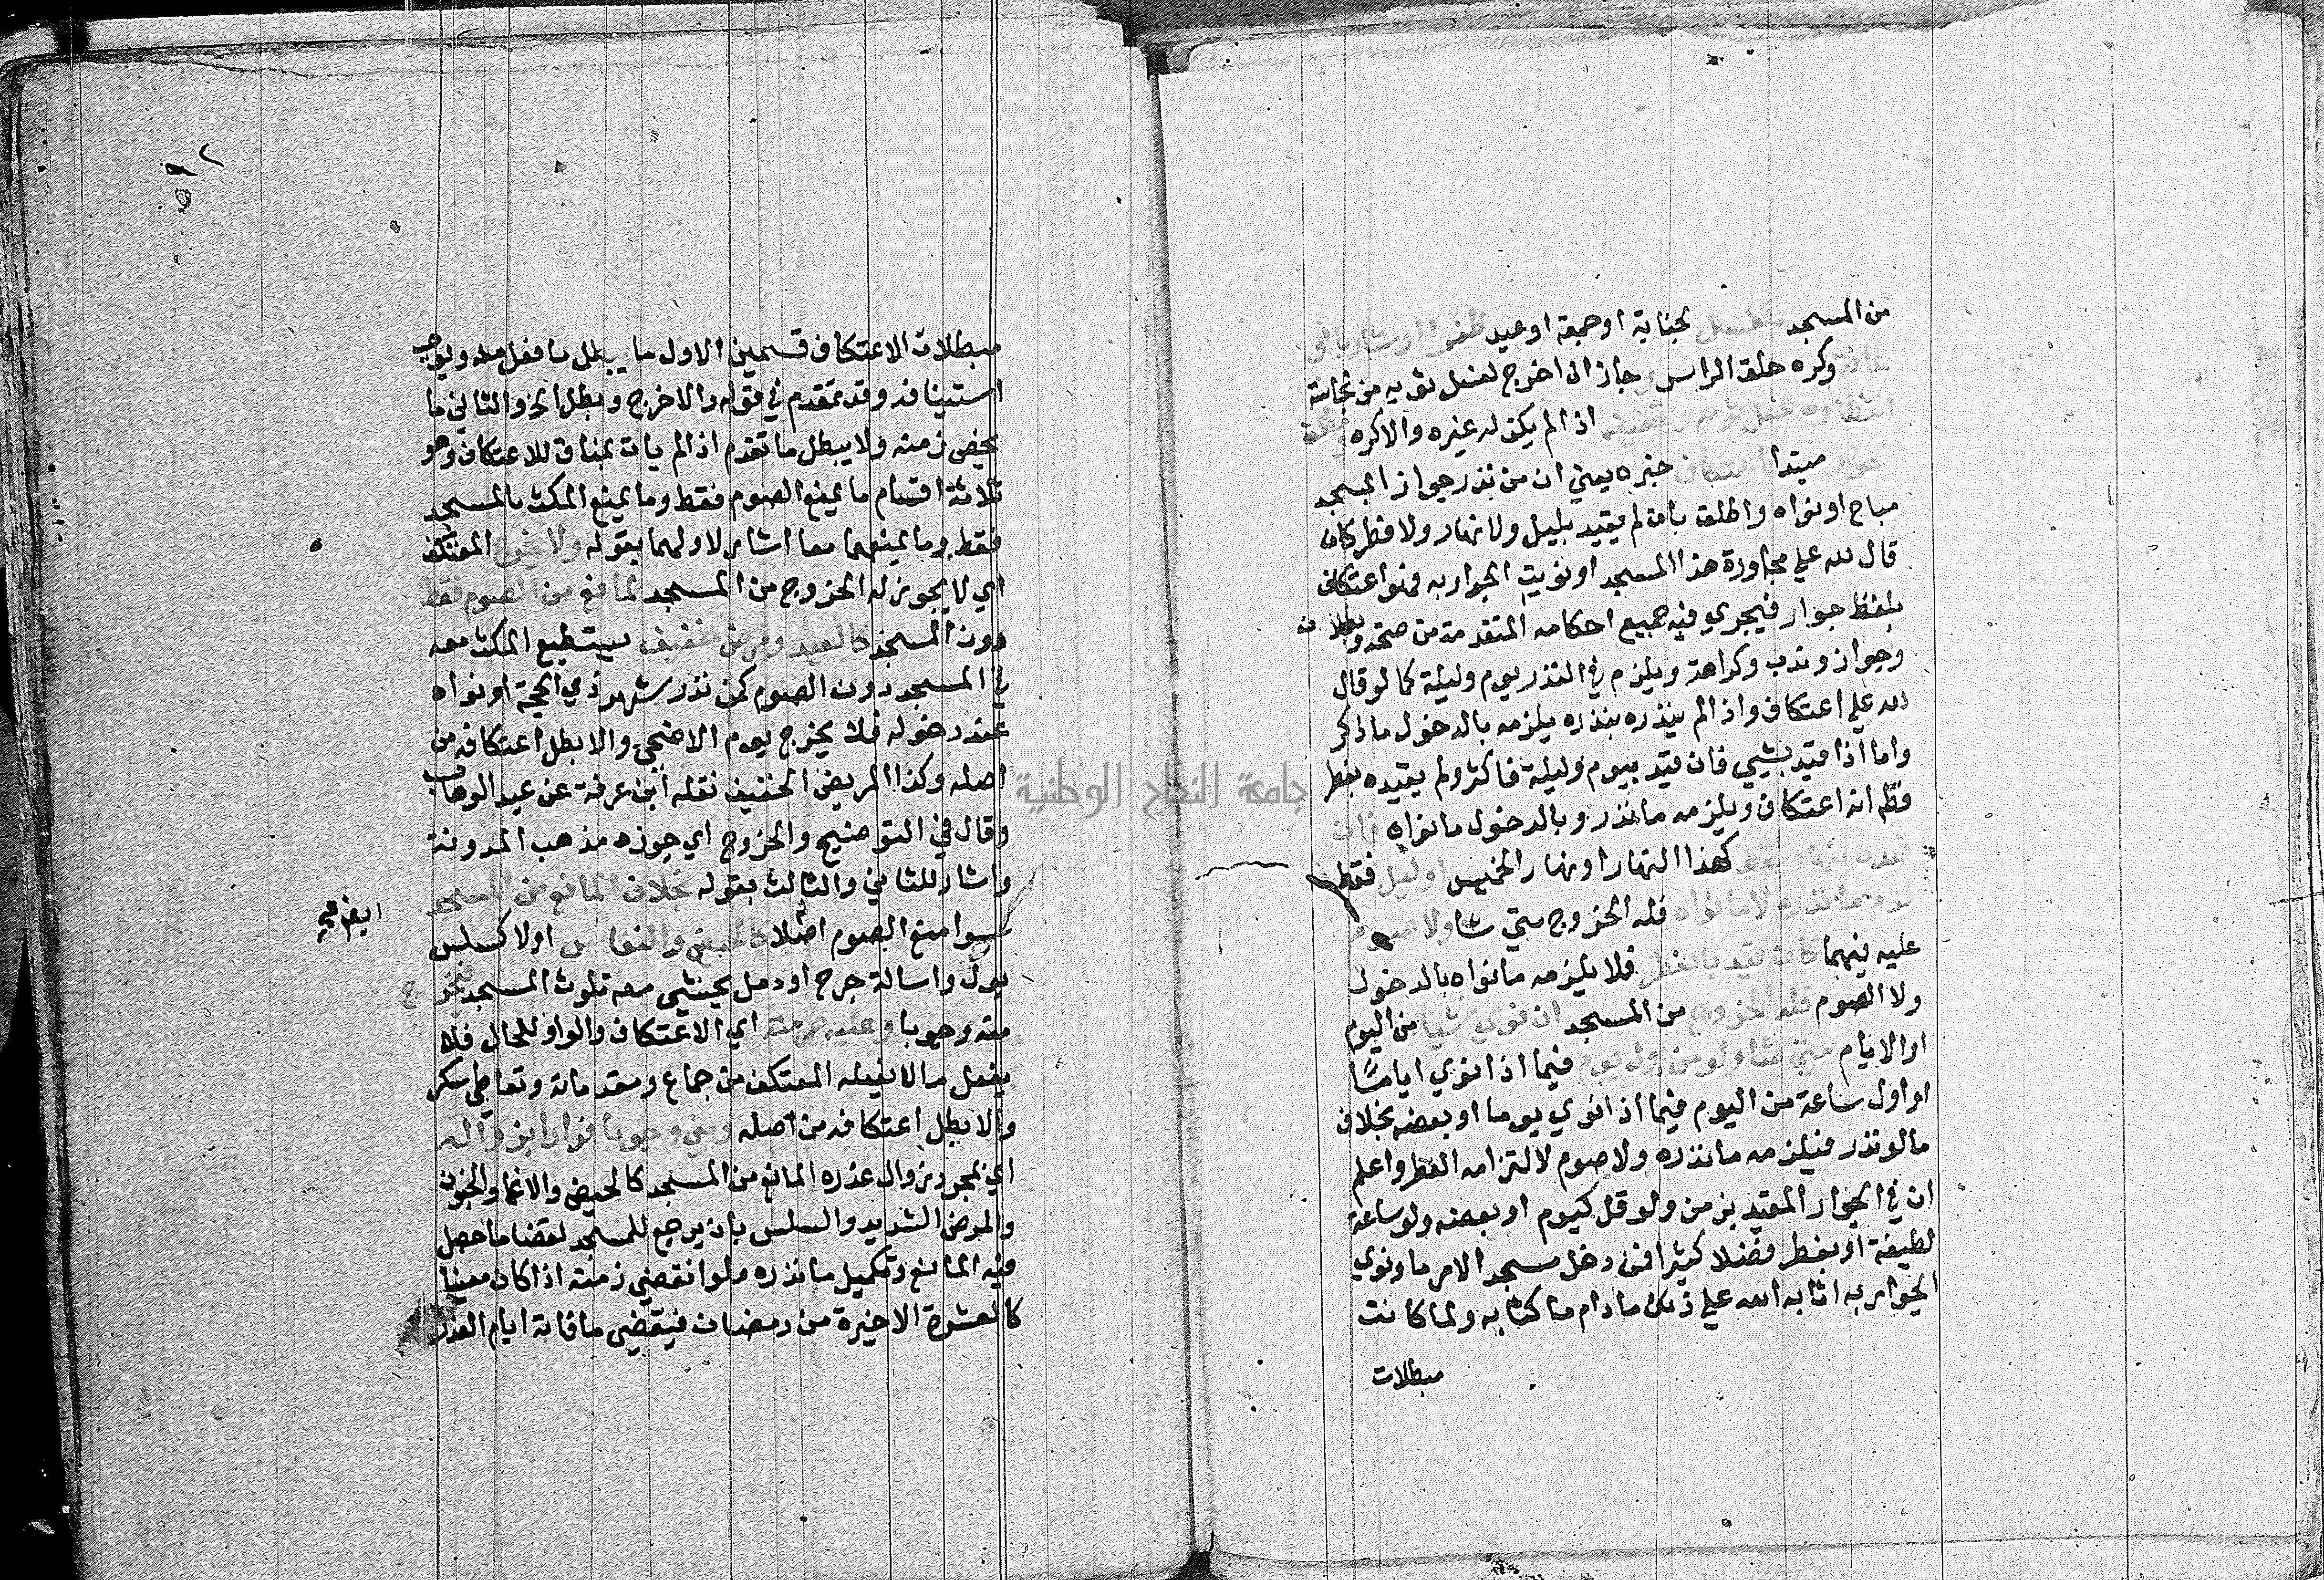 من المسجد لغسل لجنابة او جمعة او عيد ظفرا او شاربا او
وكره حلق الراس وجاز ان اخرج لغسل ثوبه من نجاسة
انتظاره غسل ثوبه وتجفيفه اذا لم يكن له غيره والاكره
مبتدا اعتكاف خبره يعني ان من نذر جوار المسجد
مباح او نواه واطلق بان لم يقيد بليل ولا نهار ولا فطر كان
قال لله علي مجاورة هذا المسجد او نويت الجوار به فهو اعتكاف
بلفظ جوار فيجري فيه جميع احكامه المتقدمة من صحة وبطلان
وجواز وندب وكراهة ويلزم في النذر يوم وليلة كما لو قال
لله علي اعتكاف واذا لم ينذره بنذره يلزمه بالدخول ما ذكر
واما اذا قيد بشيي فان قيد بيوم وليلة فاكثر ولم يقيده بفطر
فظ انه اعتكاف ويلزمه ما نذر وبالدخول ما نواه فان
قيده بنهار فقط كهذا النهار او نهار الخميس او ليل فقط
لزم ما نذره لا ما نواه فله الخروج متي شا ولا صوم
عليه فيهما كان قيد بالفطر فلا يلزمه ما نواه بالدخول
ولا الصوم فله الخروج من المسجد ان نوي شيا من اليوم
او الايام متي شا ولو من اول يوم فيما اذا نوي اياما
او اول ساعة من اليوم فيما اذا نوي يوما او بعضه بخلاف
ما لو نذر فيلزمه ما نذره ولا صوم لالتزامه الفطر واعلم
ان في الجوار المقيد بزمن ولو قل كيوم او بعضه ولو ساعة
لطيفة او بفطر فضلا كثيرا فمن دخل مسجد الامر ما ونوي
الجوار به اثابه الله علي ذلك ما دام ماكثا به ولما كانت
مبطلات
مبطلات الاعتكاف قسمين الاول ما يبطل ما فعل منه ويوجب
استينافه وقد تقدم في قوله والا خرج وبطل الخ والثاني ما
يخص زمنه ولا يبطل ما تقدم اذا لم يات بمناف للاعتكاف وهو
ثلاثة اقسام ما يمنع الصوم فقط وما يمنع المكث بالمسجد
فقط وما يمنعهما معا اشار لاولهما بقوله ولا يخرج المعتكف
اي لا يجوز له الخروج من المسجد لمانع من الصوم فقط
دون المسجد كالعيد ومرض خفيف يستطيع المكث معه
في المسجد دون الصوم كمن نذر شهر ذي الحجة او نواه
عند دخوله فلا يخرج يوم الاضحي والا بطل اعتكافه من
اصله وكذا المريض الخفيف نقله ابن عرفة عن عبد الوهاب
وقال في التوضيح والخروج اي جوزه مذهب المدونة
واشار للثاني والثالث بقوله بخلاف المانع من المسجد
سوا منع الصوم اصلا كالحيض والنفاس او لا كسلس
بول واسالة جرح او دمل يخشي معه تلوث المسجد فيخرج
منه وجوبا وعليه حرمته اي الاعتكاف والواو للحال فلا
يفعل ما لا يفعله المعتكف من جماع ومقدماته وتعاطي سكر
والا بطل اعتكافه من اصله وبني وجوبا فورا بزواله
اي بمجرد زوال عذره المانع من المسجد كالحيض والاغما والجنون
والمرض الشديد والسلس بان يرجع للمسجد لقضا ما حصل
فيه المانع وتكميل ما نذره ولو انقضي زمنه اذا كان معينا
كالعشرة الاخيرة من رمضان فيقضي ما فاته ايام العذر
جامعة النجاح الوطنية